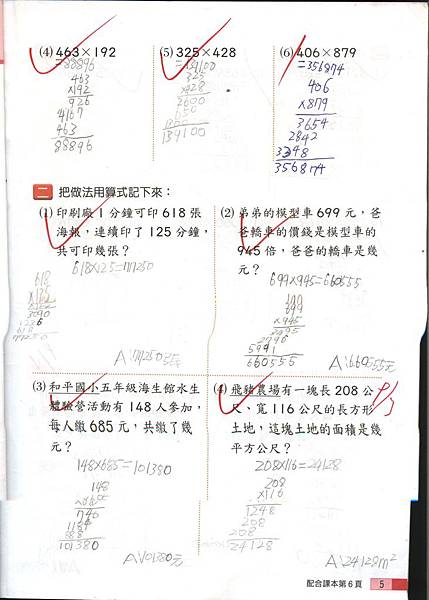 (4) 463×192
=88896
463
×192
926
4167
463
88896
(5) 325×428
=139100
325
×428
2600
650
1300
139100
(6) 406×879
=356874
406
×879
3654
2842
3248
356874
二 把做法用算式記下來：
(1) 印刷廠1分鐘可印618張
海報，連續印了125分鐘，
共可印幾張？
618×125=77250
618
3090
1236
618
77250
A:77250張
(2) 弟弟的模型車699元，爸
爸轎車的價錢是模型車的
945倍，爸爸的轎車是幾
元？
699×945=660555
699
×945
3495
2796
5991
660555
A:660555元
(3) 和平國小五年級海生館水生
體驗營活動有148人參加，
每人繳685元，共繳了幾
元？
148×685=101380
148
×685
740
1184
888
101380
A:101380元
(4) 飛豬農場有一塊長208公
尺、寬116公尺的長方形
土地，這塊土地的面積是幾
平方公尺？
208×116=24128
208
×116
1248
208
208
24128
A:24128m²
配合課本第6頁 5